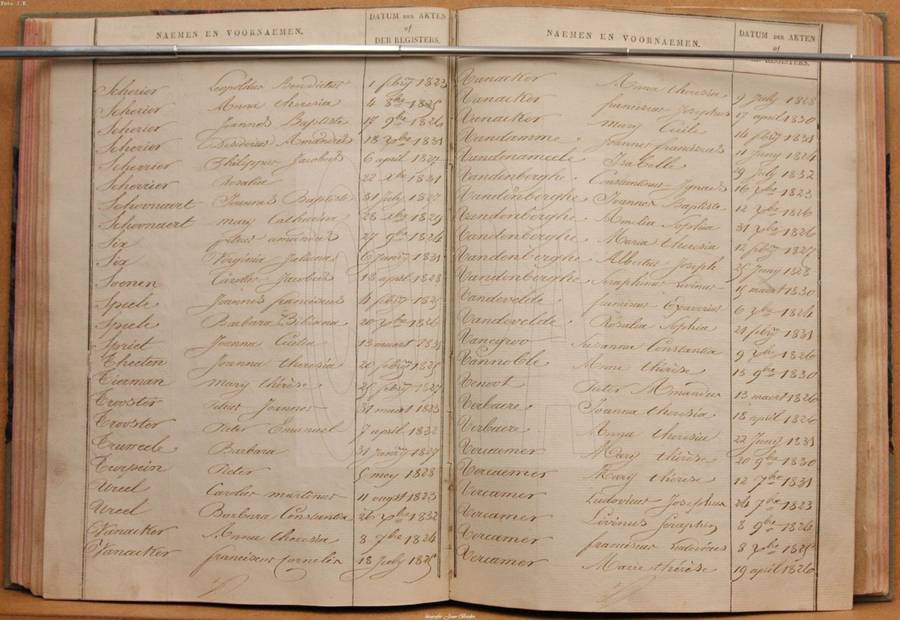 Foto: J.R.
NAEMEN EN VOORNAEMEN. DATUM DER AKTEN
of
DER REGISTERS.
Scherier Leopoldus Benedictus 1 febry 1823
Scherier Anna theresia 4 8bre 1825
Scherier Joannes Baptiste 18 9bre 1826
Scherier Desiderius Amandus 18 xbre 1831
Scherrier Philippus Jacobus 6 april 1827
Scherrier Rosalia 22 xbre 1831
Schoonaert Joannes Baptiste 31 july 1827
Schoonaert mary Catharina 28 xbre 1829
Six petrus amandus 27 9bre 1824
Six Virginia Juliana 6 Janry 1831
Soenen Carolus Jacobus 18 april 1828
Speele Joannes franciscus 4 febry 1825
Speele Barbara Bibiana 20 xbre 1826
Spriet Joanna Cicilia 13 maart 1831
Theeten Joanna theresia 20 febry 1825
Tierman mary thérèse 25 febry 1827
Trooster Petrus Joannes 31 maart 1823
Trooster Pieter Emanuel 7 april 1832
Truweele Barbara 31 Janry 1827
Pieter 5 mey 1828
Ureel Carolus martinus 11 augst 1823
Ureel Barbara Constantia 26 xbre 1832
Vanacker Anna theresia 8 7bre 1824
Vanacker franciscus Cornelis 18 July 1825
NAEMEN EN VOORNAEMEN. DATUM DER AKTEN
of
DER REGISTERS.
Vanacker Anna theresia 9 July 1828
Vanacker franciscus Josephus 17 april 1830
Vanacker mary Cicile 14 febry 1831
Vandamme Joannes franciscus 11 Juny 1824
Vandenameele Isabelle 9 July 1832
Vandenberghe Constantinus Ignaes 16 7bre 1823
Vandenberghe Joannes Baptiste 12 7bre 1826
Vandenberghe Amelia Sophia 31 xbre 1826
Vandenberghe Maria theresia 12 febry 1827
Vandenberghe Albertus Joseph 25 Juny 1828
Vandenberghe Seraphinus Livinus 15 maart 1830
Vandevelde franciscus Xaverius 6 xbre 1824
Vandevelde Rosalia Sophia 21 febry 1831
Suzanna Constantia 9 xbre 1826
Vannoble Anne thérèse 13 9bre 1830
Venoot Pieter Amandus 13 maart 1826
Verbaere Joanna theresia 18 april 1826
Verbaere Anna theresia 22 Juny 1831
Vercamer Mary thérèse 20 9bre 1830
Vercamer Mary thérèse 12 7bre 1831
Vercamer Ludovicus Josephus 24 7bre 1823
Vercamer Livinus Seraphin 8 9bre 1824
Vercamer franciscus 8 xbre 1825
Vercamer Marie thérèse 19 april 1826